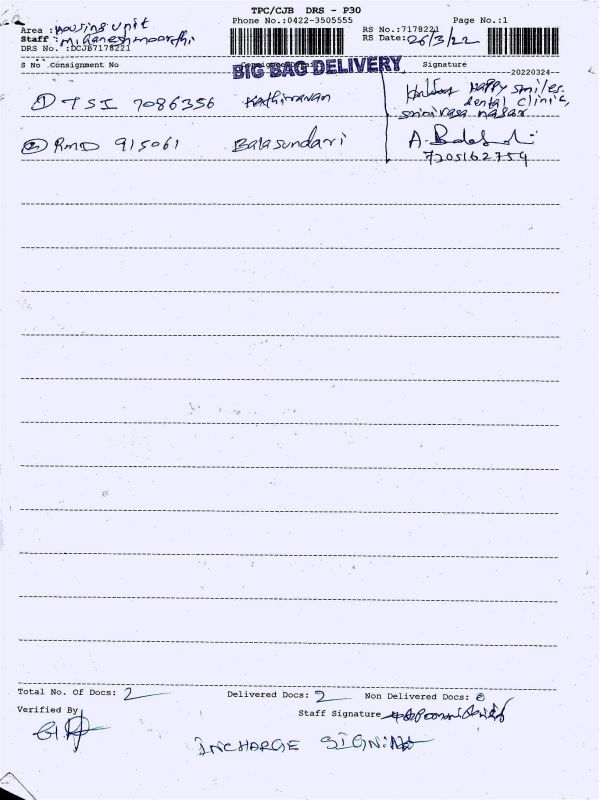 TPC/CJB DRS - P30
Phone No.:0422-3505555
Page No.:1
Area : Housing unit
Staff : M. Ganeshmoorthi
DRS No. :DCJB7178221
RS No.:7178221
RS Date: 26/3/22
S No Consignment No
BIG BAG DELIVERY
Signature
20220324
① TSI 7086356 Kathiravan
Happy smiles.
dental clinic,
srinivasa nagar
② RMD 915061 Balasundari
7205162754
Total No. Of Docs: 2
Delivered Docs: 2
Non Delivered Docs: 0
Verified By
Staff Signature
INCHARGE SIGNING